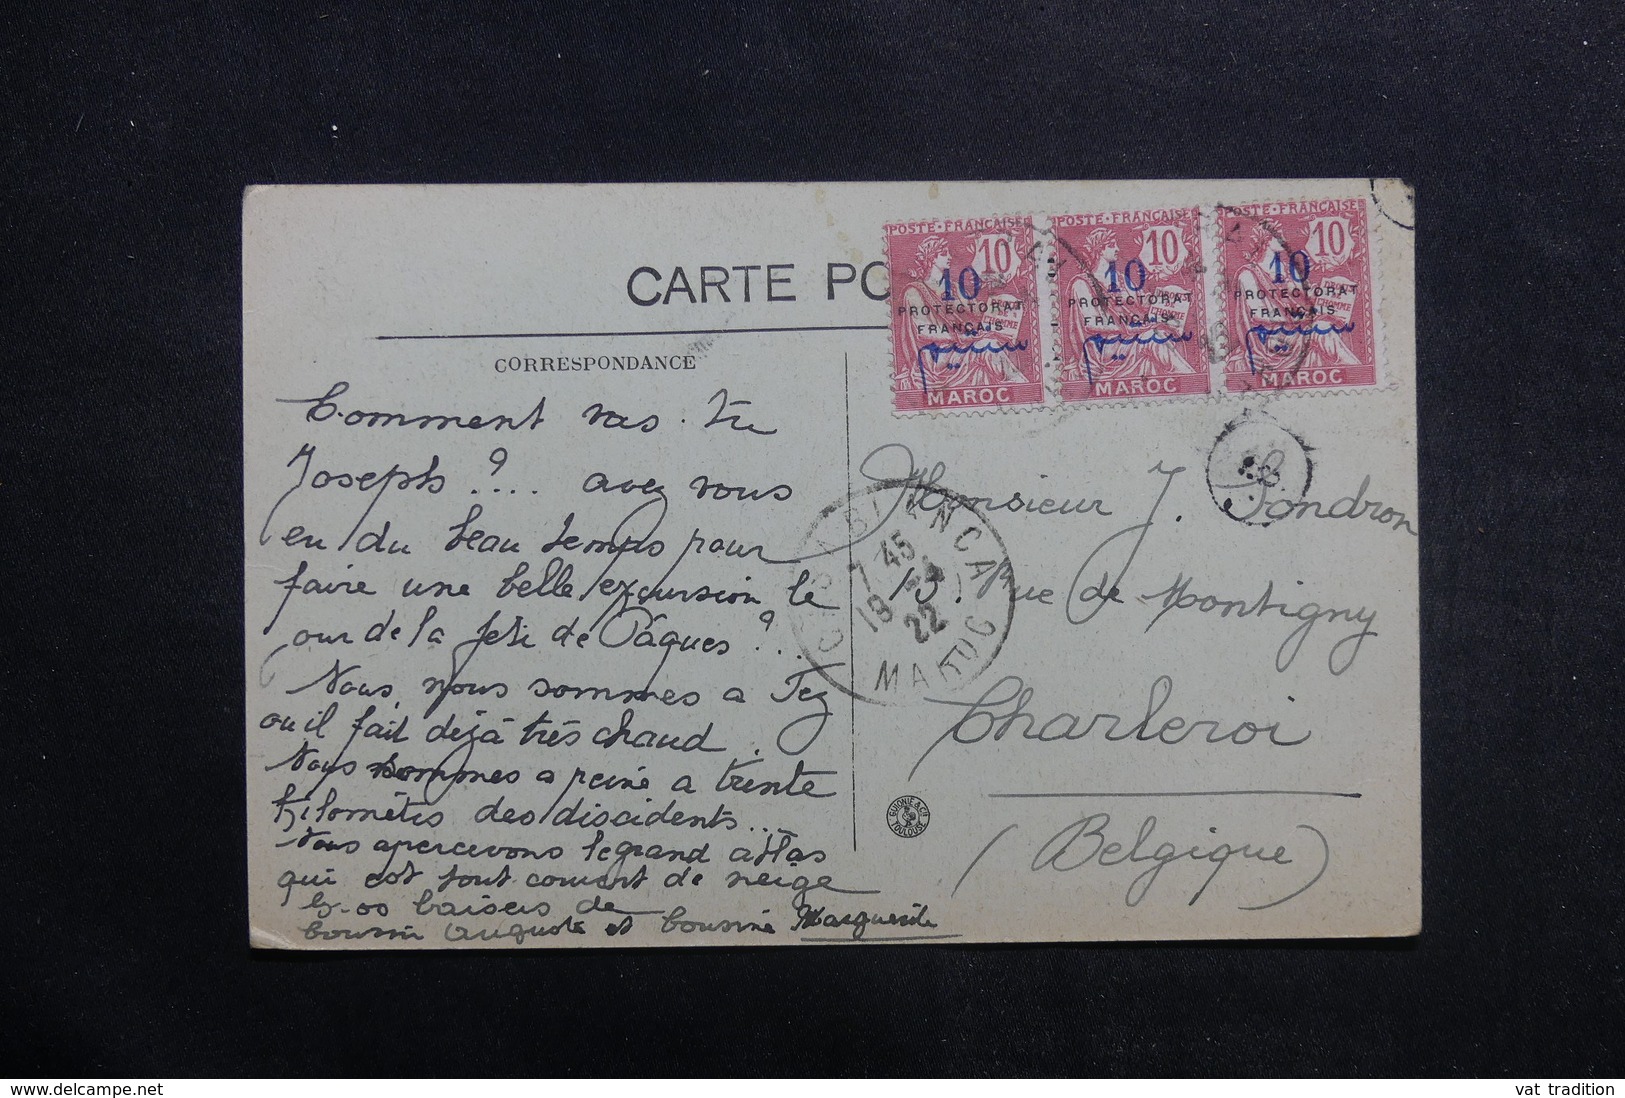 CARTE PO
CORRESPONDANCE
Comment vas-tu
Joseph ?... avez vous
eu du beau temps pour
faire une belle excursion le
our de la fête de Pâques ?..
Nous, nous sommes a Fez
ou il fait déjà très chaud.
Nous sommes a peine a trente
kilomètres des discidents...
Nous apercevons le grand atlas
qui est tout couvert de neige
baisers de
Cousin Auguste et Cousine Marguerite
POSTE·FRANÇAISE
10
10
PROTECTORAT
FRANÇAIS
MAROC
POSTE·FRANÇAISE
10
10
PROTECTORAT
FRANÇAIS
MAROC
POSTE·FRANÇAISE
10
10
PROTECTORAT
FRANÇAIS
MAROC
CASABLANCA
7 45
22
MAROC
Monsieur J. Tondron
13. Rue de Montigny
Charleroi
(Belgique)
GUIONIE & CIE
TOULOUSE
delcampe.net
vat_tradition